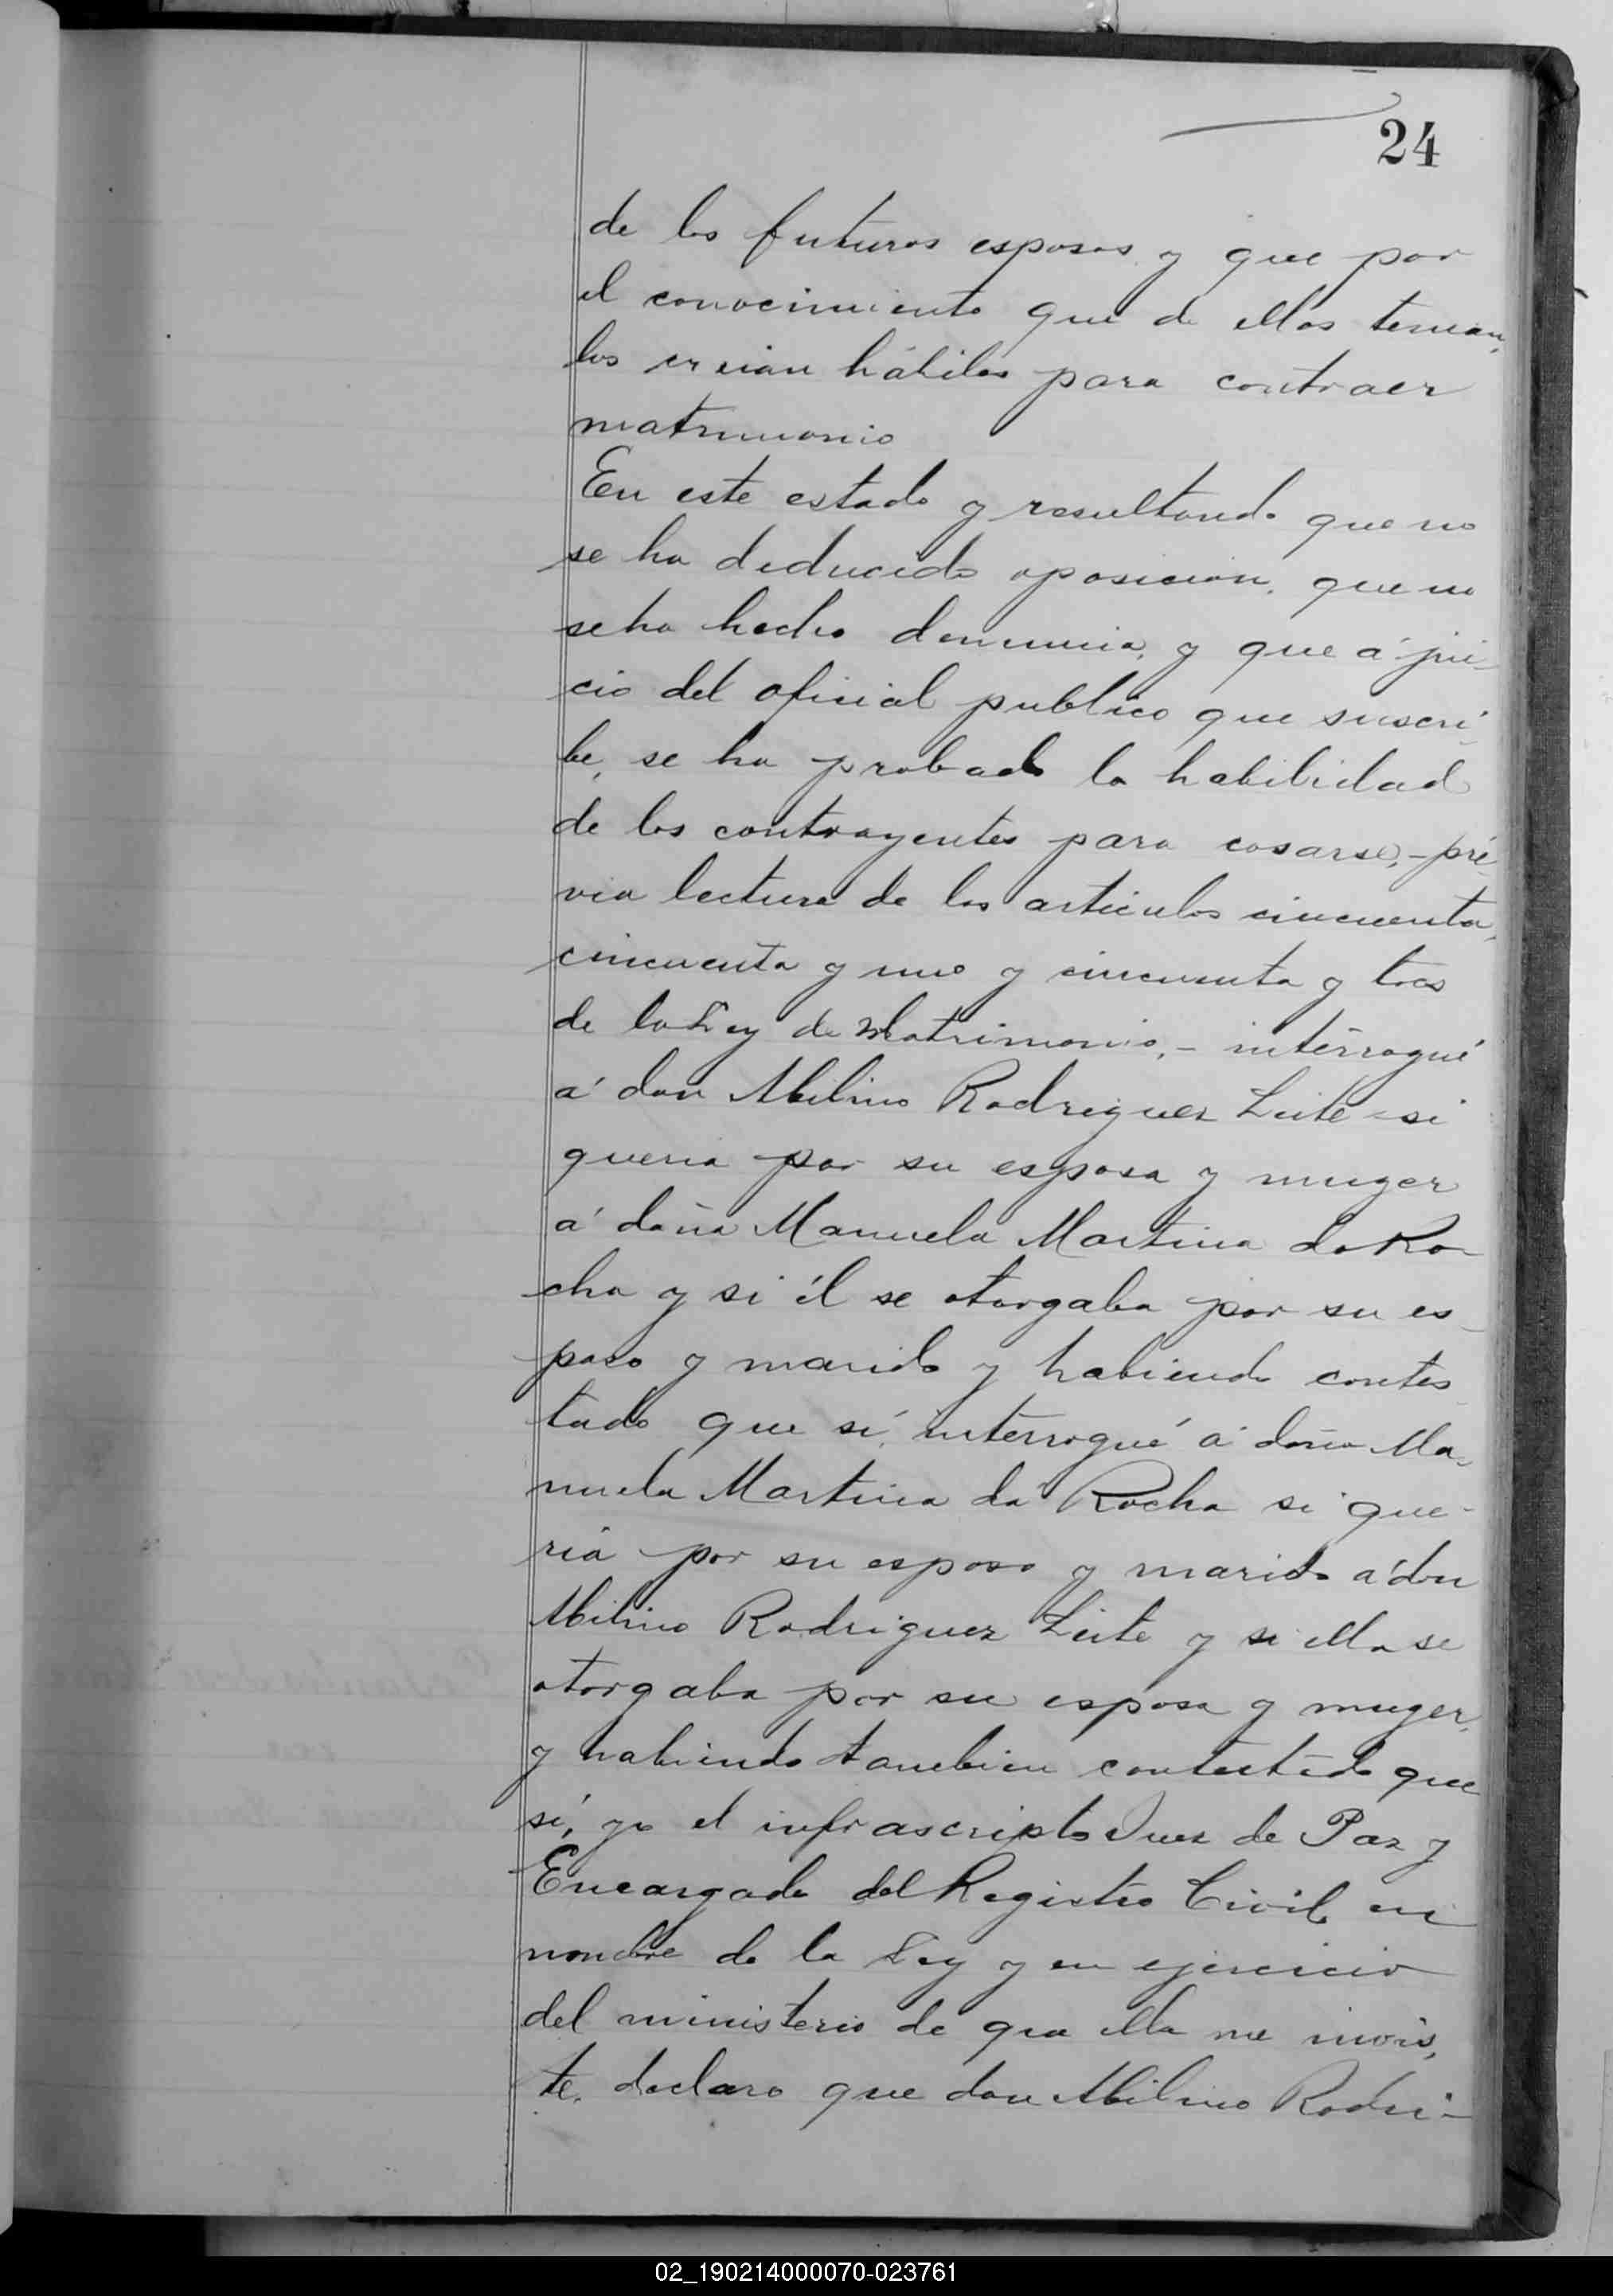 24
de los futuros esposos y que por
el conocimiento que de ellos tenian,
los creian hábiles para contraer
matrimonio
En este estado y resultando que no
se ha deducido oposicion, que no
se ha hecho denuncia, y que á jui-
cio del oficial publico que suscri-
be, se ha probado la habilidad
de los contrayentes para casarse, - pré-
via lectura de los articulos cincuenta,
cincuenta y uno y cincuenta y tres
de la Ley de Matrimonio, - interrogué
á don Abilino Rodriguez Leite - si
queria por su esposa y muger
á doña Manuela Martina da Ro-
cha y si él se otorgaba por su es-
poso y marido y habiendo contes-
tado que sí, interrogué á doña Ma-
nuela Martina da Rocha si que-
ria por su esposo y marido á don
Abilino Rodriguez Leite y si ella se
otorgaba por su esposa y muger,
y habiendo tambien contestado que
sí, yo el infrascripto Juez de Paz y
Encargado del Registro Civil, en
nombre de la Ley y en ejercicio
del ministerio de que ella me invis-
te, declaro que don Abilino Rodri-
02_190214000070-023761